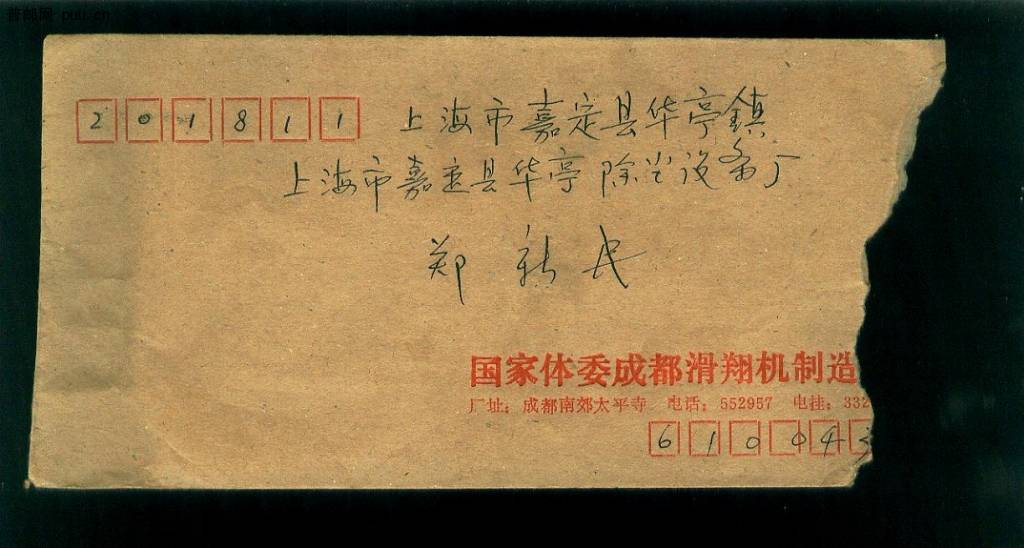 普邮网 puu.cn
201811
上海市嘉定县华亭鎮
上海市嘉定县华亭除尘设备厂
郑新民
国家体委成都滑翔机制造
厂址：成都南郊太平寺 电话：552957 电挂：332
610043